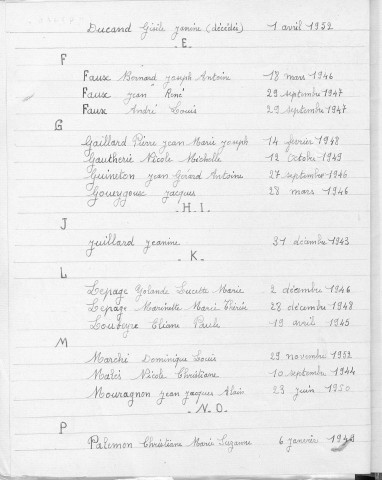 Ducand Gisèle Janine (décédée) 1 avril 1952
.E.
F
Faux Bernard Joseph Antoine 18 mars 1946
Faux Jean René 29 septembre 1947
Faux André Louis 29 septembre 1947
G
Gaillard Pierre Jean Marie Joseph 14 février 1948
Gautherie Nicole Michelle 12 octobre 1949
Guineton Jean Gérard Antoine 27 septembre 1946
Goueygoux Jacques 28 mars 1946
.H.I.
J
Juillard Jeanine 31 décembre 1943
.K.
L
Lepage Yolande Lucette Marie 2 décembre 1946
Lepage Marinette Marie Thérèse 28 décembre 1948
Louboyre Eliane Paule 19 avril 1945
M
Marché Dominique Louis 29 novembre 1952
Malès Nicole Christiane 10 septembre 1944
Mouragnon Jean Jacques Alain 23 juin 1950
.N.O.
P
Palemon Christiane Marie Suzanne 6 janvier 1949